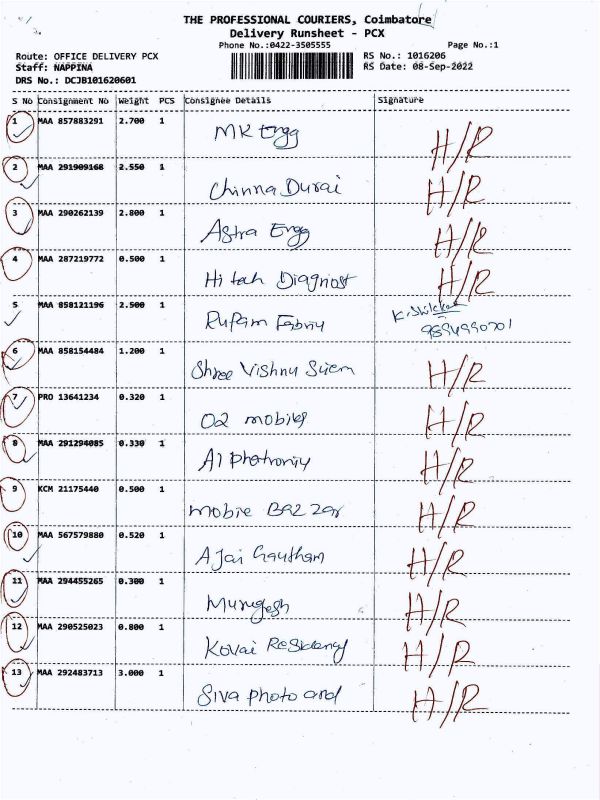 THE PROFESSIONAL COURIERS, Coimbatore
Delivery Runsheet - PCX
Phone No.:0422-3505555 Page No.:1
Route: OFFICE DELIVERY PCX RS No.: 1016206
Staff: NAPPINA RS Date: 08-Sep-2022
DRS No.: DCJB101620601
S No Consignment No Weight PCS Consignee Details Signature
1 MAA 857883291 2.700 1
MK Engg H/R
2 MAA 291909168 2.550 1
Chinna Durai H/R
3 MAA 290262139 2.800 1
Astra Engg H/R
4 MAA 287219772 0.500 1
Hi tah Diagnost H/R
5 MAA 858121196 2.500 1
Rupam Fabriy
6 MAA 858154484 1.200 1
Shree Vishnu H/R
7 PRO 13641234 0.320 1
O2 mobiles H/R
8 MAA 291294085 0.330 1
A1 photroniy H/R
9 KCM 21175440 0.500 1
mobie Bazzar H/R
10 MAA 567579880 0.520 1
Ajai Gautham H/R
11 MAA 294455265 0.300 1
Murugesh H/R
12 MAA 290525023 0.800 1
Kovai Residency H/R
13 MAA 292483713 3.000 1
Siva photo and H/R